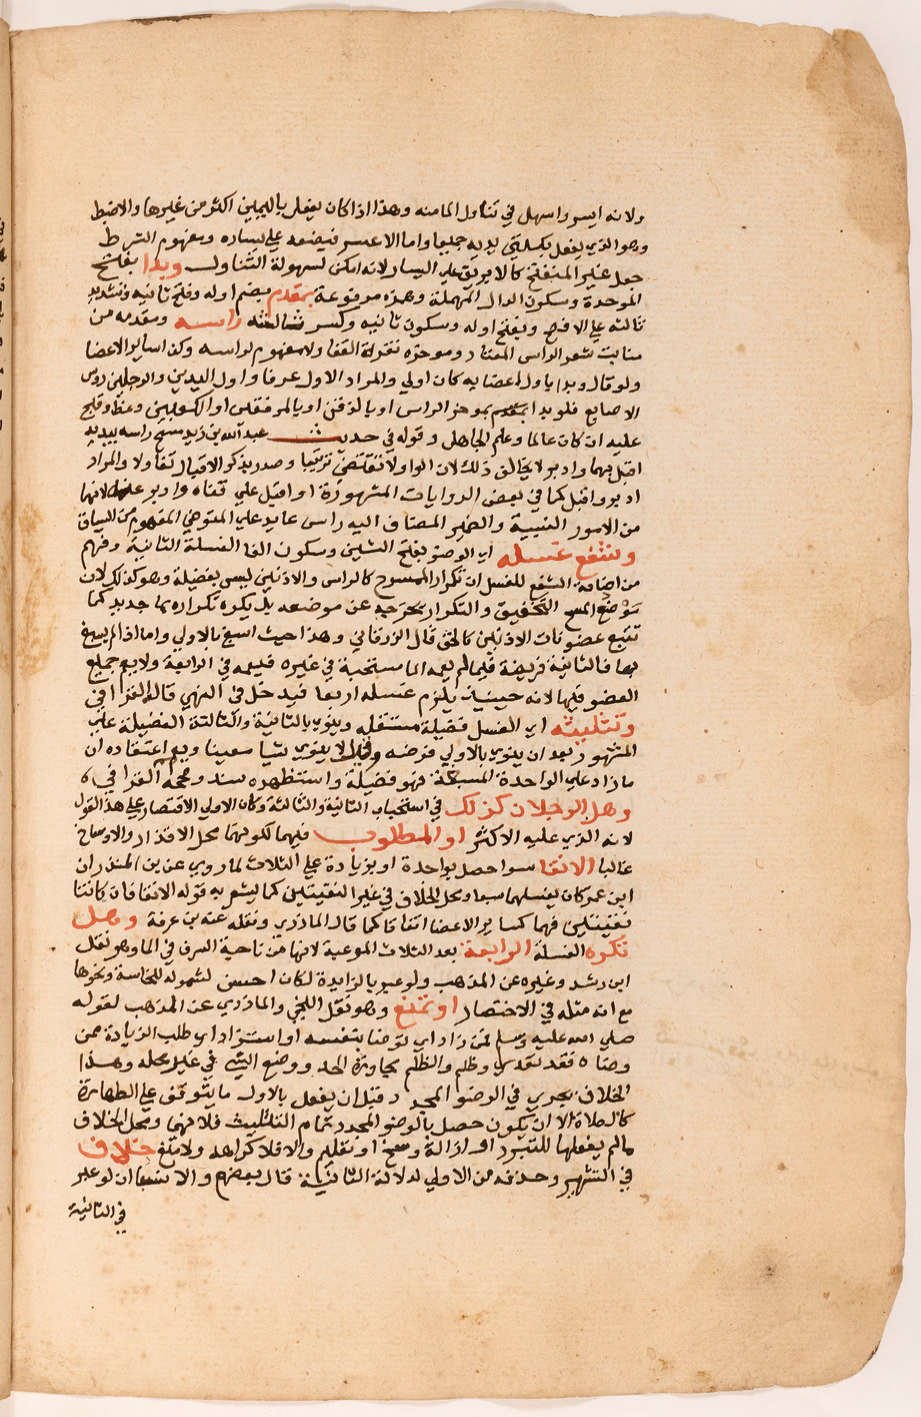 ولانه ايسر واسهل في تناول الما منه وهذا اذا كان يفعل باليمين اكثر من غيرها والاضبط
وهو الذي يفعل بكلتي يديه جميعا واما الاعسر فيضعه علي يساره ومفهوم الشرط
جعل غير المنفتح كالابريق علي اليسار لانه امكن لسهولة التناول وبدا بفتح
الموحدة وسكون الدال المهملة وهمزه مرفوعة بمقدم بضم اوله وفتح ثانيه وتشديد
ثالثه علي الافصح وبفتح اوله وسكون ثانيه وكسر ثالثه راسه ومقدمه من
منابت شعر الراس المعتاد وموخره نقرة القفا ولا مفهوم لراسه وكذا ساير الاعضا
ولو قال وبدا باول اعضايه كان اولي والمراد الاول عرفا واول اليدين والرجلين روس
الاصابع فلو بدا بموخر الراس او بالذقن او بالمرفقين او الكعبين وعظ وقبح
عليه ان كان عالما وعلم الجاهل وقوله في حديث عبد الله بن زيد مسح راسه بيديه
اقبل بهما وادبر لا يخالف ذلك لان الواو لا تقتضي ترتيبا وصدر بذكر الاقبال تفاولا والمراد
ادبر واقبل كما في بعض الروايات المشهورة او اقبل علي قفاه وادبر عنه لانها
من الامور النسبية والضمير المضاف اليه راس عايد علي المتوضي المفهوم من السياق
وشفع غسله اي الوضو بفتح الشين وسكون الفا الغسلة الثانية وفهم
من اضافة الشفع للغسل ان تكرار الممسوح كالراس والاذنين ليس بفضيلة وهو كذلك لان
موضع المسح التخفيف والتكرار يخرجه عن موضعه بل يكره تكراره بما جديد كما
تتبع غضونات الاذنين كالخف قال الزرقاني وهذا حيث اسبغ بالاولي واما اذا لم يسبغ
بها فالثانية فريضة فيما لم يعمه الما مستحبة في غيره فليعمه في الرابعة ولا يعم جميع
العضو فيها لانه حينيذ يلزم غسله اربعا فيدخل في النهي قاله القرافي
وتثليثه اي الغسل فضيلة مستقلة وينوي بالثانية والثالثة الفضيلة علي
المشهور بعد ان ينوي بالاولي فرضه وقيل لا ينوي شيا معينا ويعم اعتقاده ان
ما زاد علي الواحدة المسبغة فهو فضيلة واستظهره سند وصححه القرافي
وهل الرجلان كذلك في استحباب الثانية والثالثة وكان الاولي الاقتصار علي هذا القول
لانه الذي عليه الاكثر او المطلوب فيهما لكونهما محل الاقذار والاوساخ
غالبا الانقا سوا حصل بواحدة او بزيادة علي الثلاث لما روي عن بن المنذر ان
ابن عمر كان يغسلهما سبعا ومحل الخلاف في غير النقيتين كما يشعر به قوله الانقا فان كانتا
نقيتين فهما كساير الاعضا اتفاقا كما قال المازري ونقله عنه بن عرفة وهل
تكره الغسلة الرابعة بعد الثلاث الموعبة لانها من ناحية السرف في الما وهو نقل
ابن رشد وغيره عن المذهب ولو عبر بالزايدة لكان احسن لشموله للخامسة ونحوها
مع انه مثله في الاختصار او تمنع وهو نقل اللخمي والمازري عن المذهب لقوله
صلي الله عليه وسلم فمن زاد اي توضا بنفسه او استزاد اي طلب الزيادة ممن
وضاه فقد تعدي وظلم والظلم مجاوزة الحد ووضع الشي في غير محله وهذا
الخلاف يجري في الوضو المجدد قبل ان يفعل بالاول ما يتوقف علي الطهارة
كالصلاة الا ان يكون حصل بالوضو المجدد تمام التثليث فلا فيهما ومحل الخلاف
ما لم يفعلها للتبرد او ازالة وسخ او تعليم والا فلا كراهة ولا منع خلاف
في التشهير وحذفه من الاولي لدلالة الثانية قال بعضهم والانسب ان لو عبر
في الثانية